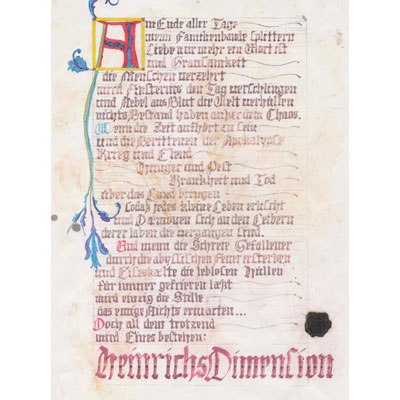 Am Ende aller Tage
wenn Familienbande splittern
Liebe nur mehr ein Wort ist
und Grausamkeit
die Menschen verzehrt
wird Finsternis den Tag verschlingen
und Nebel aus Blut die Welt verhüllen
nichts Bestand haben außer dem Chaos.
Wenn die Zeit aufhört zu sein
und die Berittenen der Apokalypse
Krieg und Elend
Hunger und Pest
Krankheit und Tod
über das Land bringen
sodaß jedes kleine Leben erlischt
und Dämonen sich an den Leibern
derer laben die vergangen sind.
Und wenn die Schreie Gefallener
durch die abyssischen Feuer ersterben
und Eiseskälte die leblosen Hüllen
für immer gefrieren läßt
wird einzig die Stille
das ewige Nichts erwarten...
Doch all dem trotzend
wird Eines bestehen:
HeinrichsDimension